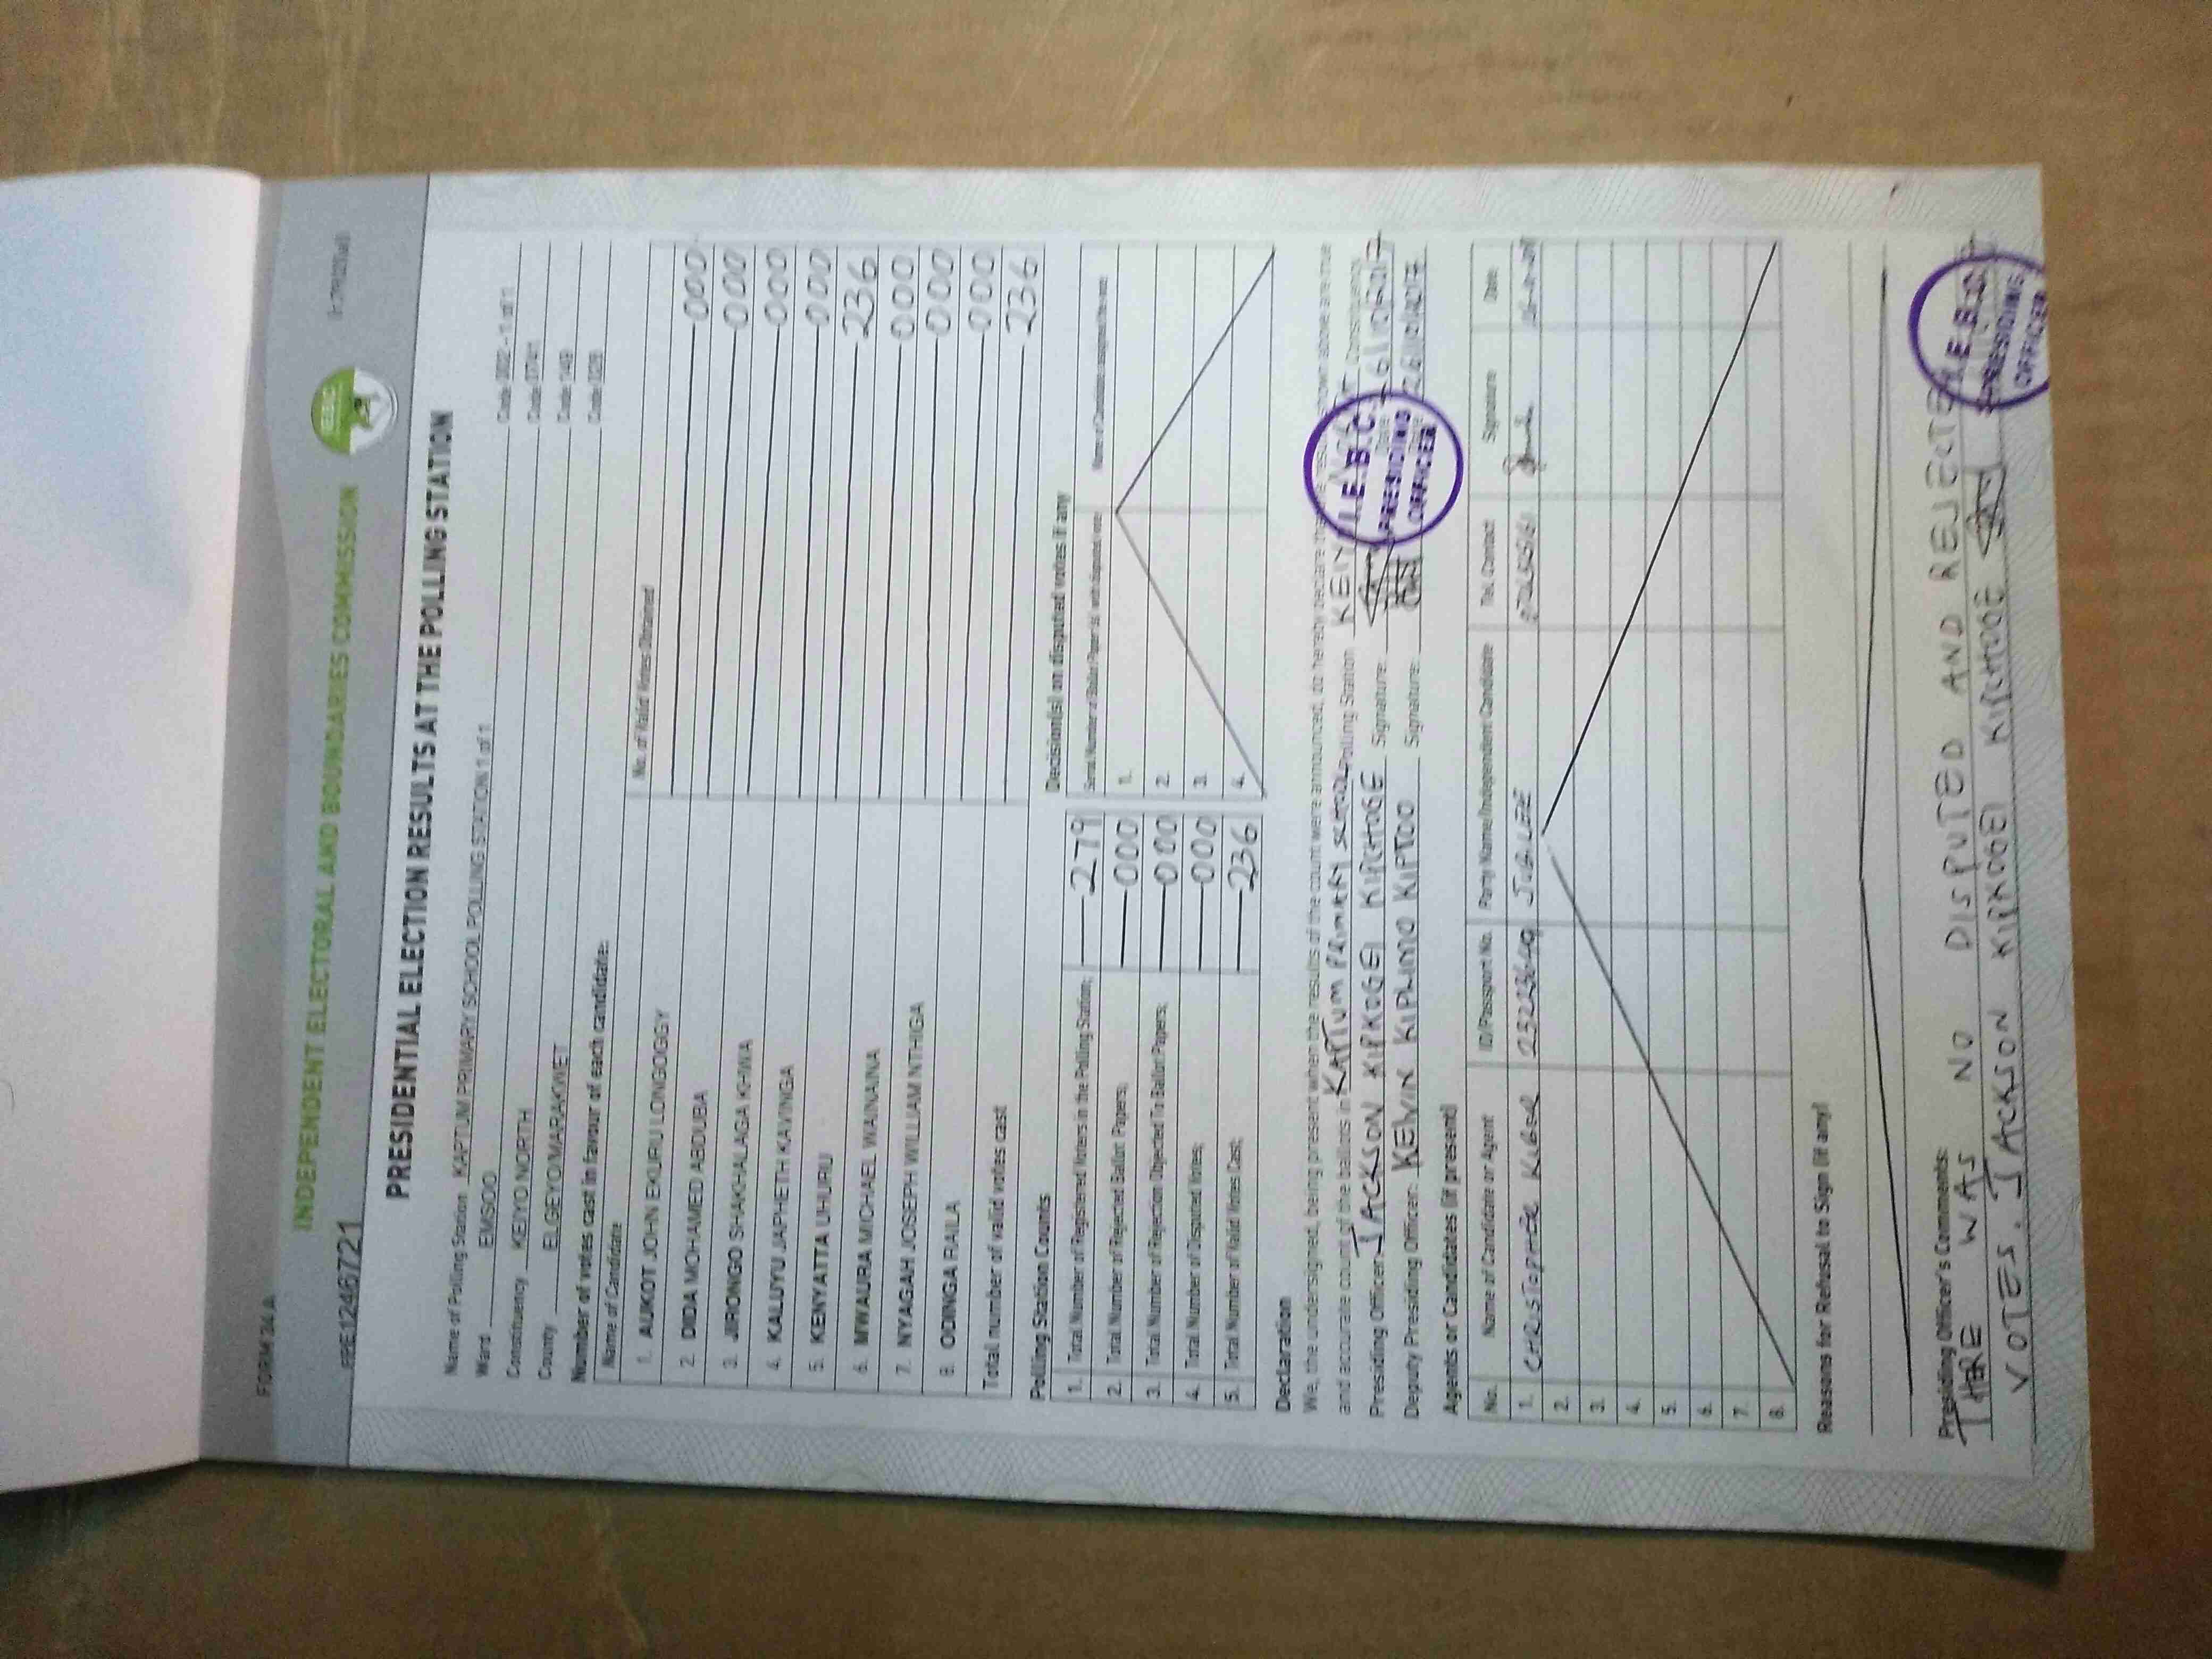 FORM 34 A
PRE1246721
INDEPENDENT ELECTORAL AND BOUNDARIES COMMISSION
IEBC
PRESIDENTIAL ELECTION RESULTS AT THE POLLING STATION
Name of Polling Station KAPTUM PRIMARY SCHOOL POLLING STATION 1 of 1 Code 002 - 1 of 1
Ward EMSOO Code 0741
Constituency KEIYO NORTH Code 149
County ELGEYO/MARAKWET Code 028
Number of votes cast in favour of each candidate:
Name of Candidate No. of Valid Votes Obtained
1. AUKOT JOHN EKURU LONGOGGY 000
2. DIDA MOHAMED ABDUBA 000
3. JIRONGO SHAKHALAGA KHWA 000
4. KALUYU JAPHETH KAVINGA 000
5. KENYATTA UHURU 236
6. MWAURA MICHAEL WAINAINA 000
7. NYAGAH JOSEPH WILLIAM NTHIGA 000
8. ODINGA RAILA 000
Total number of valid votes cast 236
Polling Station Counts
1. Total Number of Registered Voters in the Polling Station; 279
2. Total Number of Rejected Ballot Papers; 000
3. Total Number of Rejection Objected To Ballot Papers; 000
4. Total Number of Disputed Votes; 000
5. Total Number of Valid Votes Cast; 236
Decision(s) on disputed votes if any
Serial Number of Ballot Paper(s) with disputed vote Name of Candidate
1.
2.
3.
4.
Declaration
We, the undersigned, being present when the results of the count were announced, do hereby declare that the results shown above are true
and accurate count of the ballots in KAPTUM PRIMARY SCHOOL Polling Station Constituency
Presiding Officer: JACKSON KIPKOGEI KIPCHOGE Signature: Date
Deputy Presiding Officer: KELVIN KIPLIMO KIPTOO Signature:
I.E.B.C.
PRESIDING
OFFICER
Agents or Candidates (if present)
No. Name of Candidate or Agent ID/Passport No. Party Name/Independent Candidate Tel. Contact Signature Date
1. CHRISTOPHER JUBILEE
2.
3.
4.
5.
6.
7.
8.
Reasons for Refusal to Sign (if any)
Presiding Officer's Comments:
THERE WAS NO DISPUTED AND REJECTED
VOTES. JACKSON KIPKOGEI KIPCHOGE
I.E.B.C.
PRESIDING
OFFICER